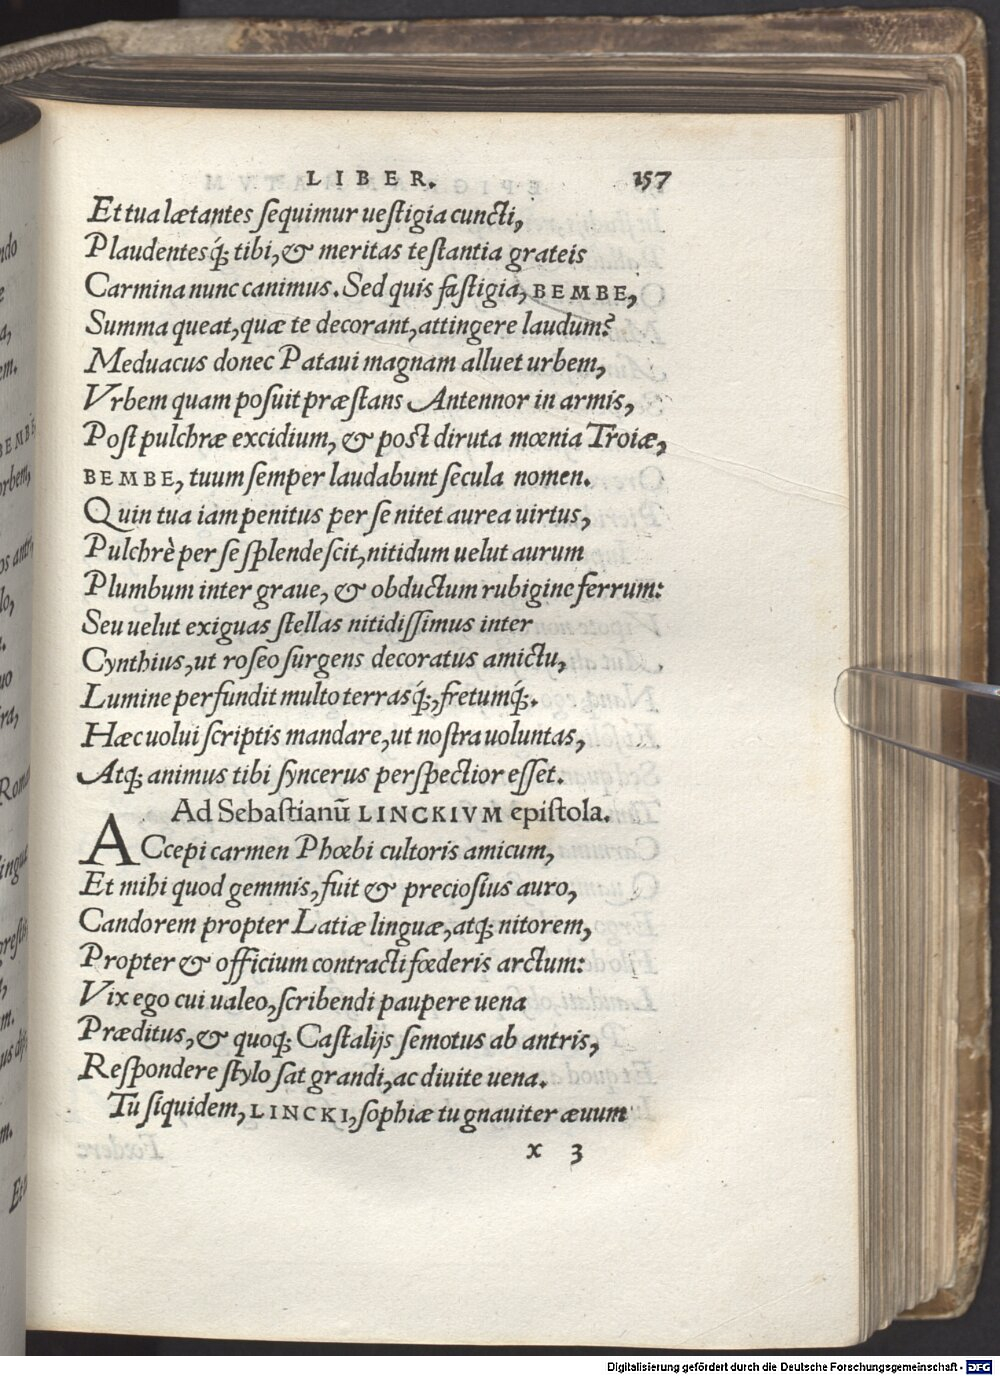 LIBER. 157
Et tua lætantes sequimur uestigia cuncti,
Plaudentesq́; tibi, & meritas testantia grateis
Carmina nunc canimus. Sed quis fastigia, BEMBE,
Summa queat, quæ te decorant, attingere laudum?
Meduacus donec Pataui magnam alluet urbem,
Vrbem quam posuit præstans Antennor in armis,
Post pulchræ excidium, & post diruta mœnia Troiæ,
BEMBE, tuum semper laudabunt secula nomen.
Quin tua iam penitus per se nitet aurea uirtus,
Pulchrè per se splendescit, nitidum uelut aurum
Plumbum inter graue, & obductum rubigine ferrum:
Seu uelut exiguas stellas nitidissimus inter
Cynthius, ut roseo surgens decoratus amictu,
Lumine perfundit multo terrasq́;, fretumq́;.
Hæc uolui scriptis mandare, ut nostra uoluntas,
Atq; animus tibi syncerus perspectior esset.
Ad Sebastianū LINCKIVM epistola.
ACcepi carmen Phœbi cultoris amicum,
Et mihi quod gemmis, fuit & preciosius auro,
Candorem propter Latiæ linguæ, atq; nitorem,
Propter & officium contracti fœderis arctum:
Vix ego cui ualeo, scribendi paupere uena
Præditus, & quoq; Castalijs semotus ab antris,
Respondere stylo sat grandi, ac diuite uena.
Tu siquidem, LINCKI, sophiæ tu gnauiter æuum
x 3
Digitalisierung gefördert durch die Deutsche Forschungsgemeinschaft - DFG